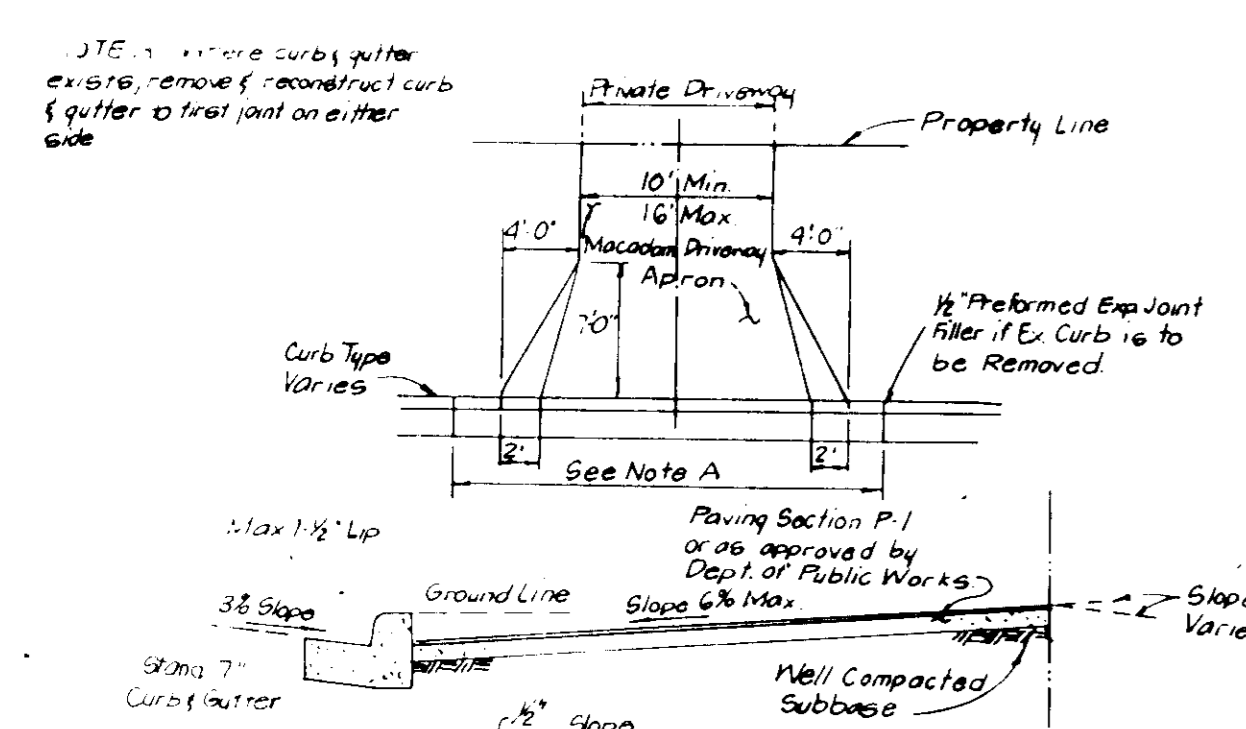 curb & gutter
exists, remove & reconstruct curb
& gutter to first joint on either
side
Private Driveway
Property Line
10' Min.
16' Max.
4'-0"
4'-0"
Macadam Driveway
Apron
½" Preformed Exp Joint
Filler if Ex. Curb is to
be Removed.
Curb Type
Varies
2'
2'
See Note A
Max 1-½" Lip
Paving Section P-1
or as approved by
Dept. of Public Works
3% Slope
Ground Line
Slope 6% Max.
Well Compacted
Subbase
7"
Curb & Gutter
½" Slope